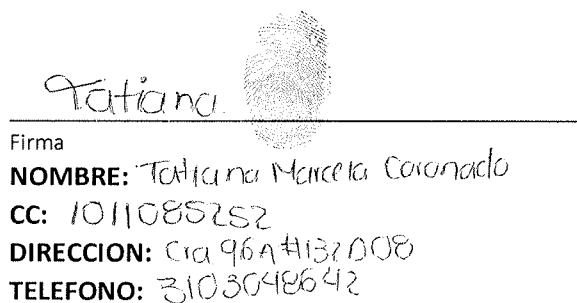 Tatiana
Firma
NOMBRE: Tatiana Marcela Coronado
CC: 1011085252
DIRECCION: Cra 96A #132D08
TELEFONO: 3103048642